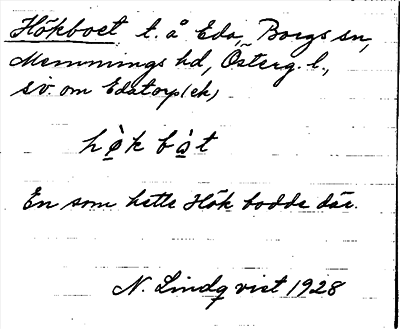 Hökboet t. å Eda, Borgs sn,
Memmings hd, Österg. l.,
sv. om Edatorp (ek)
hø̀k bȯ̤t
En som hette Hök bodde där.
N. Lindqvist 1928